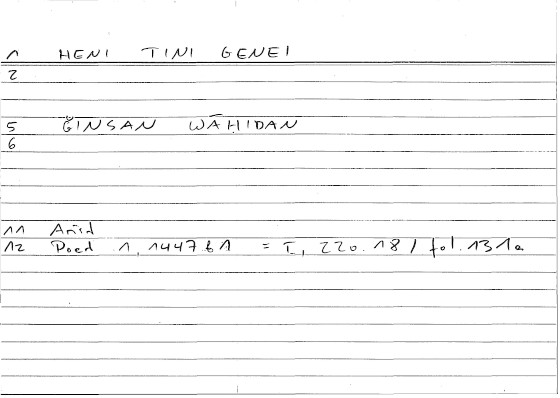 1 HENI TINI GENEI
2
5 ǦINSAN WĀḤIDAN
6
11
12 Poed 1, 1447 b 1 = I, 220. 18 / fol. 131a